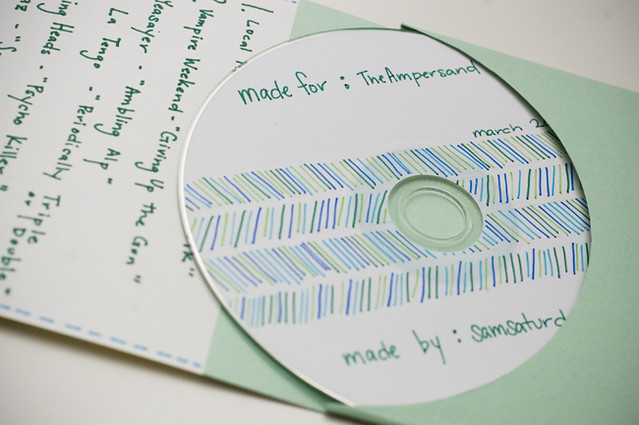 made for : TheAmpersand
march 2
made by : samsaturd
1. Local
Vampire Weekend - "Giving Up the Gun"
Yeasayer - "Ambling Alp"
La Tengo - "Periodically Triple
or Double"
ing Heads - "Psycho Killer"